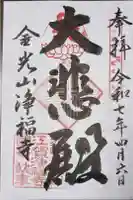 奉拝
令和七年四月六日
大悲殿
金光山浄福寺